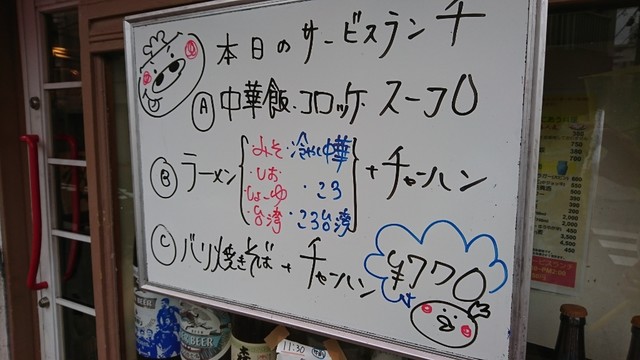 本日のサービスランチ
Ⓐ 中華飯・コロッケ・スープ
Ⓑ ラーメン{みそ・しお・しょーゆ・台湾・冷やし中華・ころ・ころ台湾}+チャーハン
Ⓒ バリ焼きそば+チャーハン
¥770
11:30
BEER